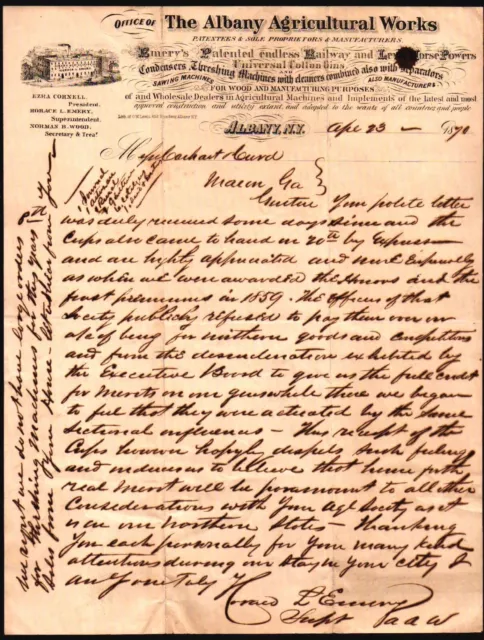 OFFICE OF The Albany Agricultural Works
PATENTEES & SOLE PROPRIETORS & MANUFACTURERS
Emery's Patented endless Railway and Lever Horse Powers
Universal Cotton Gins
AND
Condensers Threshing Machines with cleaners combined also with separators
SAWING MACHINES ALSO MANUFACTURERS
FOR WOOD AND MANUFACTURING PURPOSES
of and Wholesale Dealers in Agricultural Machines and Implements of the latest and most
approved construction and adapted to the wants of all countries and people
EZRA CORNELL.
President.
HORACE L. EMERY.
Superintendent.
NORMAN D. WOOD.
Secretary & Treasr
ALBANY, N.Y. 23 1870
Curd
Macon Ga
Your polite letter
was duly received some days since and the
Cups also came to hand on 20th by Express
and are highly appreciated and more Especially
as when we were awarded the Honors and the
first premiums in 1859. The Officers of that
Society publicly refused to pay them over on
of being for northern goods and competitors
and from the exhibited by
the Executive Board to give us the full credit
for Merits on our gins while there we began
to feel that they were actuated by the same
Sectional influences — This receipt of the
Cups however happily dispels such feelings
and induces us to believe that hence forth
real Merit will be paramount to all other
Considerations with Your Agl Society as it
is in our Northern States — Thanking
You each personally for Your many kind
attentions during our stay in Your City I
am Yours Truly
Horace L Emery
Supt A A W
we do not have large orders
for threshing machines for this years
Sales from Your House